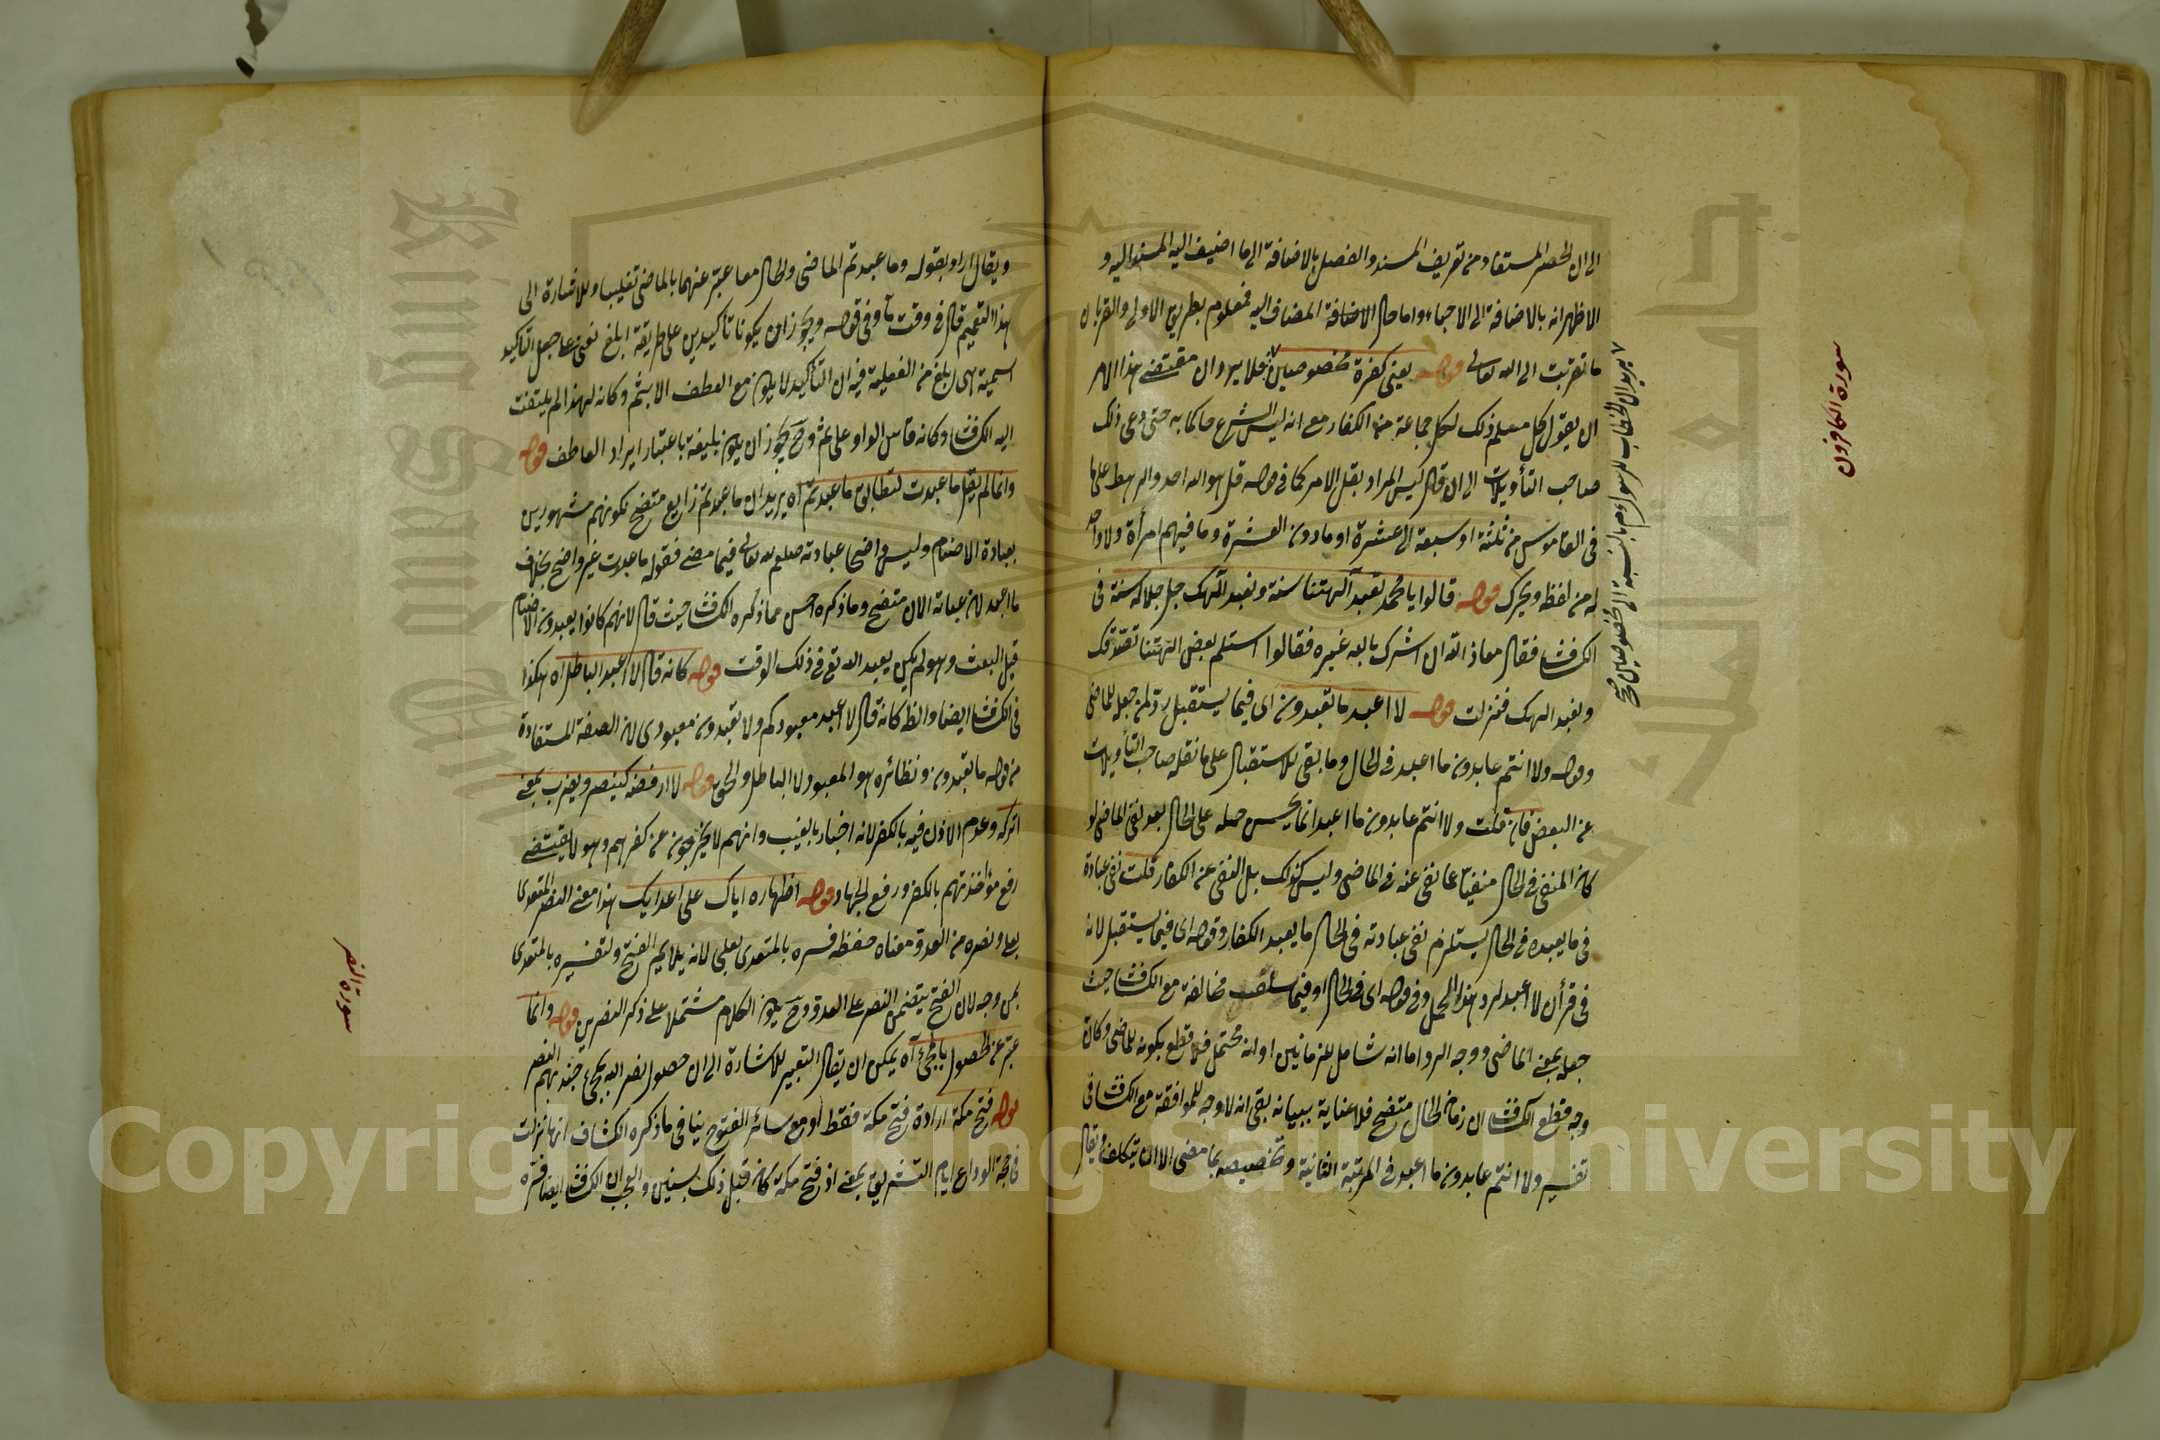 الى ان الحصر المستفاد من تعريف المسند والفصل بالاضافة الى ما اضيف اليه المسند اليه و
الاظهر انه بالاضافة الى الاحياء واما حال الاضافة المضاف اليه فمعلوم بطريق الاولى والقربان
ما تقربت الى الله تعالى قوله يعنى كفرة مخصوصين فلا يرد ان مقتضى هذا الامر
ان يقول كل مسلم ذلك لكل جماعة من الكفار مع انه ليس الشرع حاكما به حتى دعى ذلك
صاحب التأويلات الى ان قال ليس المراد بقل الامر كما فى قوله قل هو الله احد والرهط على ما
فى القاموس من ثلثة او سبعة الى عشرة او ما دون العشرة وما فيهم امرأة ولا واحد
له من لفظه ويحرك قوله قالوا يا محمد تعبد آلهتنا سنة ونعبد آلهك جل جلاله سنة فى
الكشاف فقال معاذ الله ان اشرك بالله غيره فقالوا استلم بعض آلهتنا نصدقك
ونعبد الهك فنزلت قوله لا اعبد ما تعبدون اى فيما يستقبل رد لمن جعل للماضى
وقوله ولا انتم عابدون ما اعبد فى الحال وما بقى للاستقبال على ما نقله صاحب التأويلات
عن البعض فان قلت ولا انتم عابدون ما اعبد انما يحسن حمله على الحال بعد نفى الماضى لو
كان المنفى فى الحال منفيا عما نفى عنه فى الماضى وليس كذلك بل النفى عن الكفار قلت نفى عبادة
فى ما يعبده فى الحال يستلزم نفى عبادته فى الحال ما يعبد الكفار وقوله اى فيما يستقبل لانه
فى قرأن لا اعبد لرد هذا الحمل وفى قوله اى فى الحال او فيما سلف مخالفة مع الكشاف حيث
جعل بمعنى الماضى ووجه الرد اما انه شامل للزمانين او انه محتمل فلا قطع بكونه للماضى وكان
وجه قطع الكشاف ان زمان الحال متضح فلا عناية ببيانه بقى انه لا وجه للموافقة مع الكشاف فى
تفسير ولا انتم عابدون ما اعبد فى المرتبة الثانية وتخصيصه بما مضى الا ان يتكلف ويقال
يريد ان الخطاب للرسول ءم بالنسبة الى مخصوصين صح
سورة الكافرون
ويقال اراد بقوله وما عبدتم الماضى والحال معا عبر عنهما بالماضى تغليبا وللاشارة الى
هذا التعميم قال فى وقت ما وفى قوله ويجوز ان يكونا تأكيدين على طريقة ابلغ نفى جعل التأكيد
اسمية هى ابلغ من الفعلية فيه ان التأكيد لا يلايم مع العطف الا بثم وكانه لهذا لم يلتفت
اليه الكشاف وكانه قاس الواو على ثم وح يجوز ان يكون بليغة باعتبار ايراد العاطف قوله
وانما لم يقل ما عبدت لتطابق ما عبدتم اه يريد ان ما عبدتم زاريع متضح لكونهم مشهورين
بعبادة الاصنام وليس واضحا عبادته صلعم لله تعالى فيما مضى فقوله ما عبدت غير واضح بخلاف
ما اعبد لان عبادته الان متضح وما ذكره احسن مما ذكره الكشاف حيث قال لانهم كانوا يعبدون الاصنام
قبل البعث وهو لم يكن يعبد الله تع فى ذلك الوقت قوله كانه قال لا اعبد الباطل اه هكذا
فى الكشاف ايضا والظ كانه قال لا اعبد معبودكم ولا تعبدون معبودى لان الصفة المستفادة
من قوله ما تعبدون ونظائره هو المعبود لا الباطل والحق قوله لا ارفضه كينصر ويضرب بمعنى
اتركه وعدم الاذن فيه بالكفر لانه اخبار بالغيب وانهم لا يخرجون عن كفرهم وهو لا يقتضى
رفع مؤاخذتهم بالكفر ورفع الجهاد قوله اظهاره اياك على اعدايك هذا معنى النصر المتعدى
بعلى ونصره من العدو معناه حفظه فسره بالمتعدى بعلى لانه يلايم الفتح ولتفسيره بالمتعدى
بمن وجه لان الفتح يتضمن النصر على العدو وح يكون الكلام مشتملا على ذكر النصرين قوله وانما
عبر عن الحصول بالمجئ اه يمكن ان يقال التعبير للاشارة الى ان حصول نصر الله بمجئ جند بهم النصر
قوله فتح مكة ارادة فتح مكة فقط او مع سائر الفتوح ينافى ما ذكره الكشاف انها نزلت
فى حجة الوداع ايام التشريق بمعنى اذ فتح مكة كان قبل ذلك بسنين والعجب ان الكشاف ايضا فسره
سورة النصر
Copyright © King Saud University